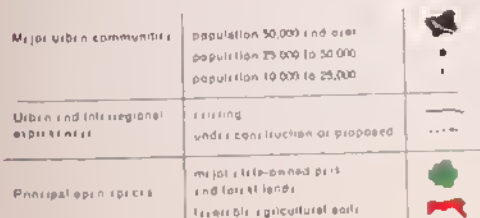 Major urban communities
population 50,000 and over
population 25 000 to 50 000
population 10 000 to 25,000
Urban and interregional
expressways
existing
under construction or proposed
Principal open spaces
major state-owned park
and forest lands
favorable agricultural soils